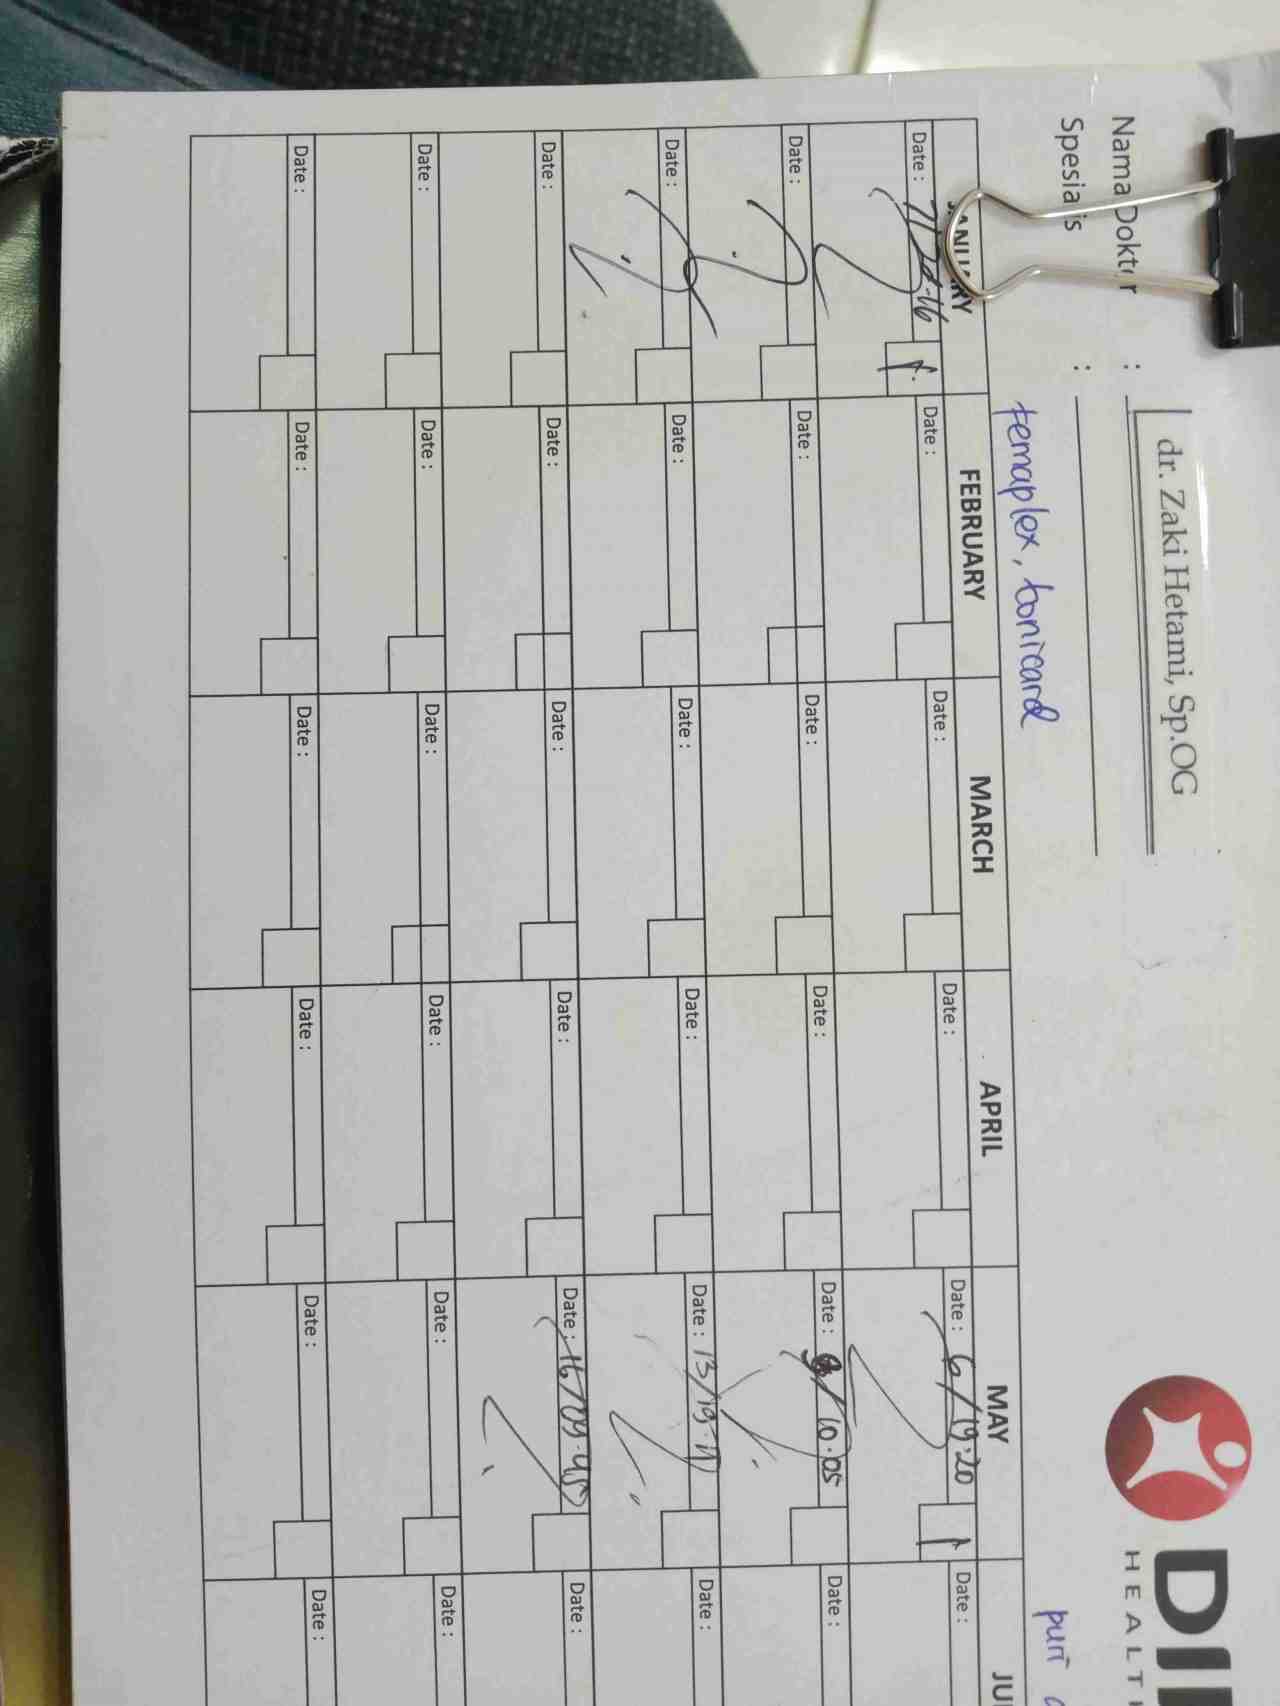 Nama Dokter : dr. Zaki Hetami, Sp.OG
Spesialis :
femaplex, bonicard
puri
DI
HEALTH
JANUARY FEBRUARY MARCH APRIL MAY JU
Date : Date : Date : Date : Date : 6/19.20 Date :
Date : Date : Date : Date : Date : /10.05 Date :
Date : Date : Date : Date : Date : 13/19.11 Date :
Date : Date : Date : Date : Date : 16/09.45 Date :
Date : Date : Date : Date : Date : Date :
Date : Date : Date : Date : Date : Date :